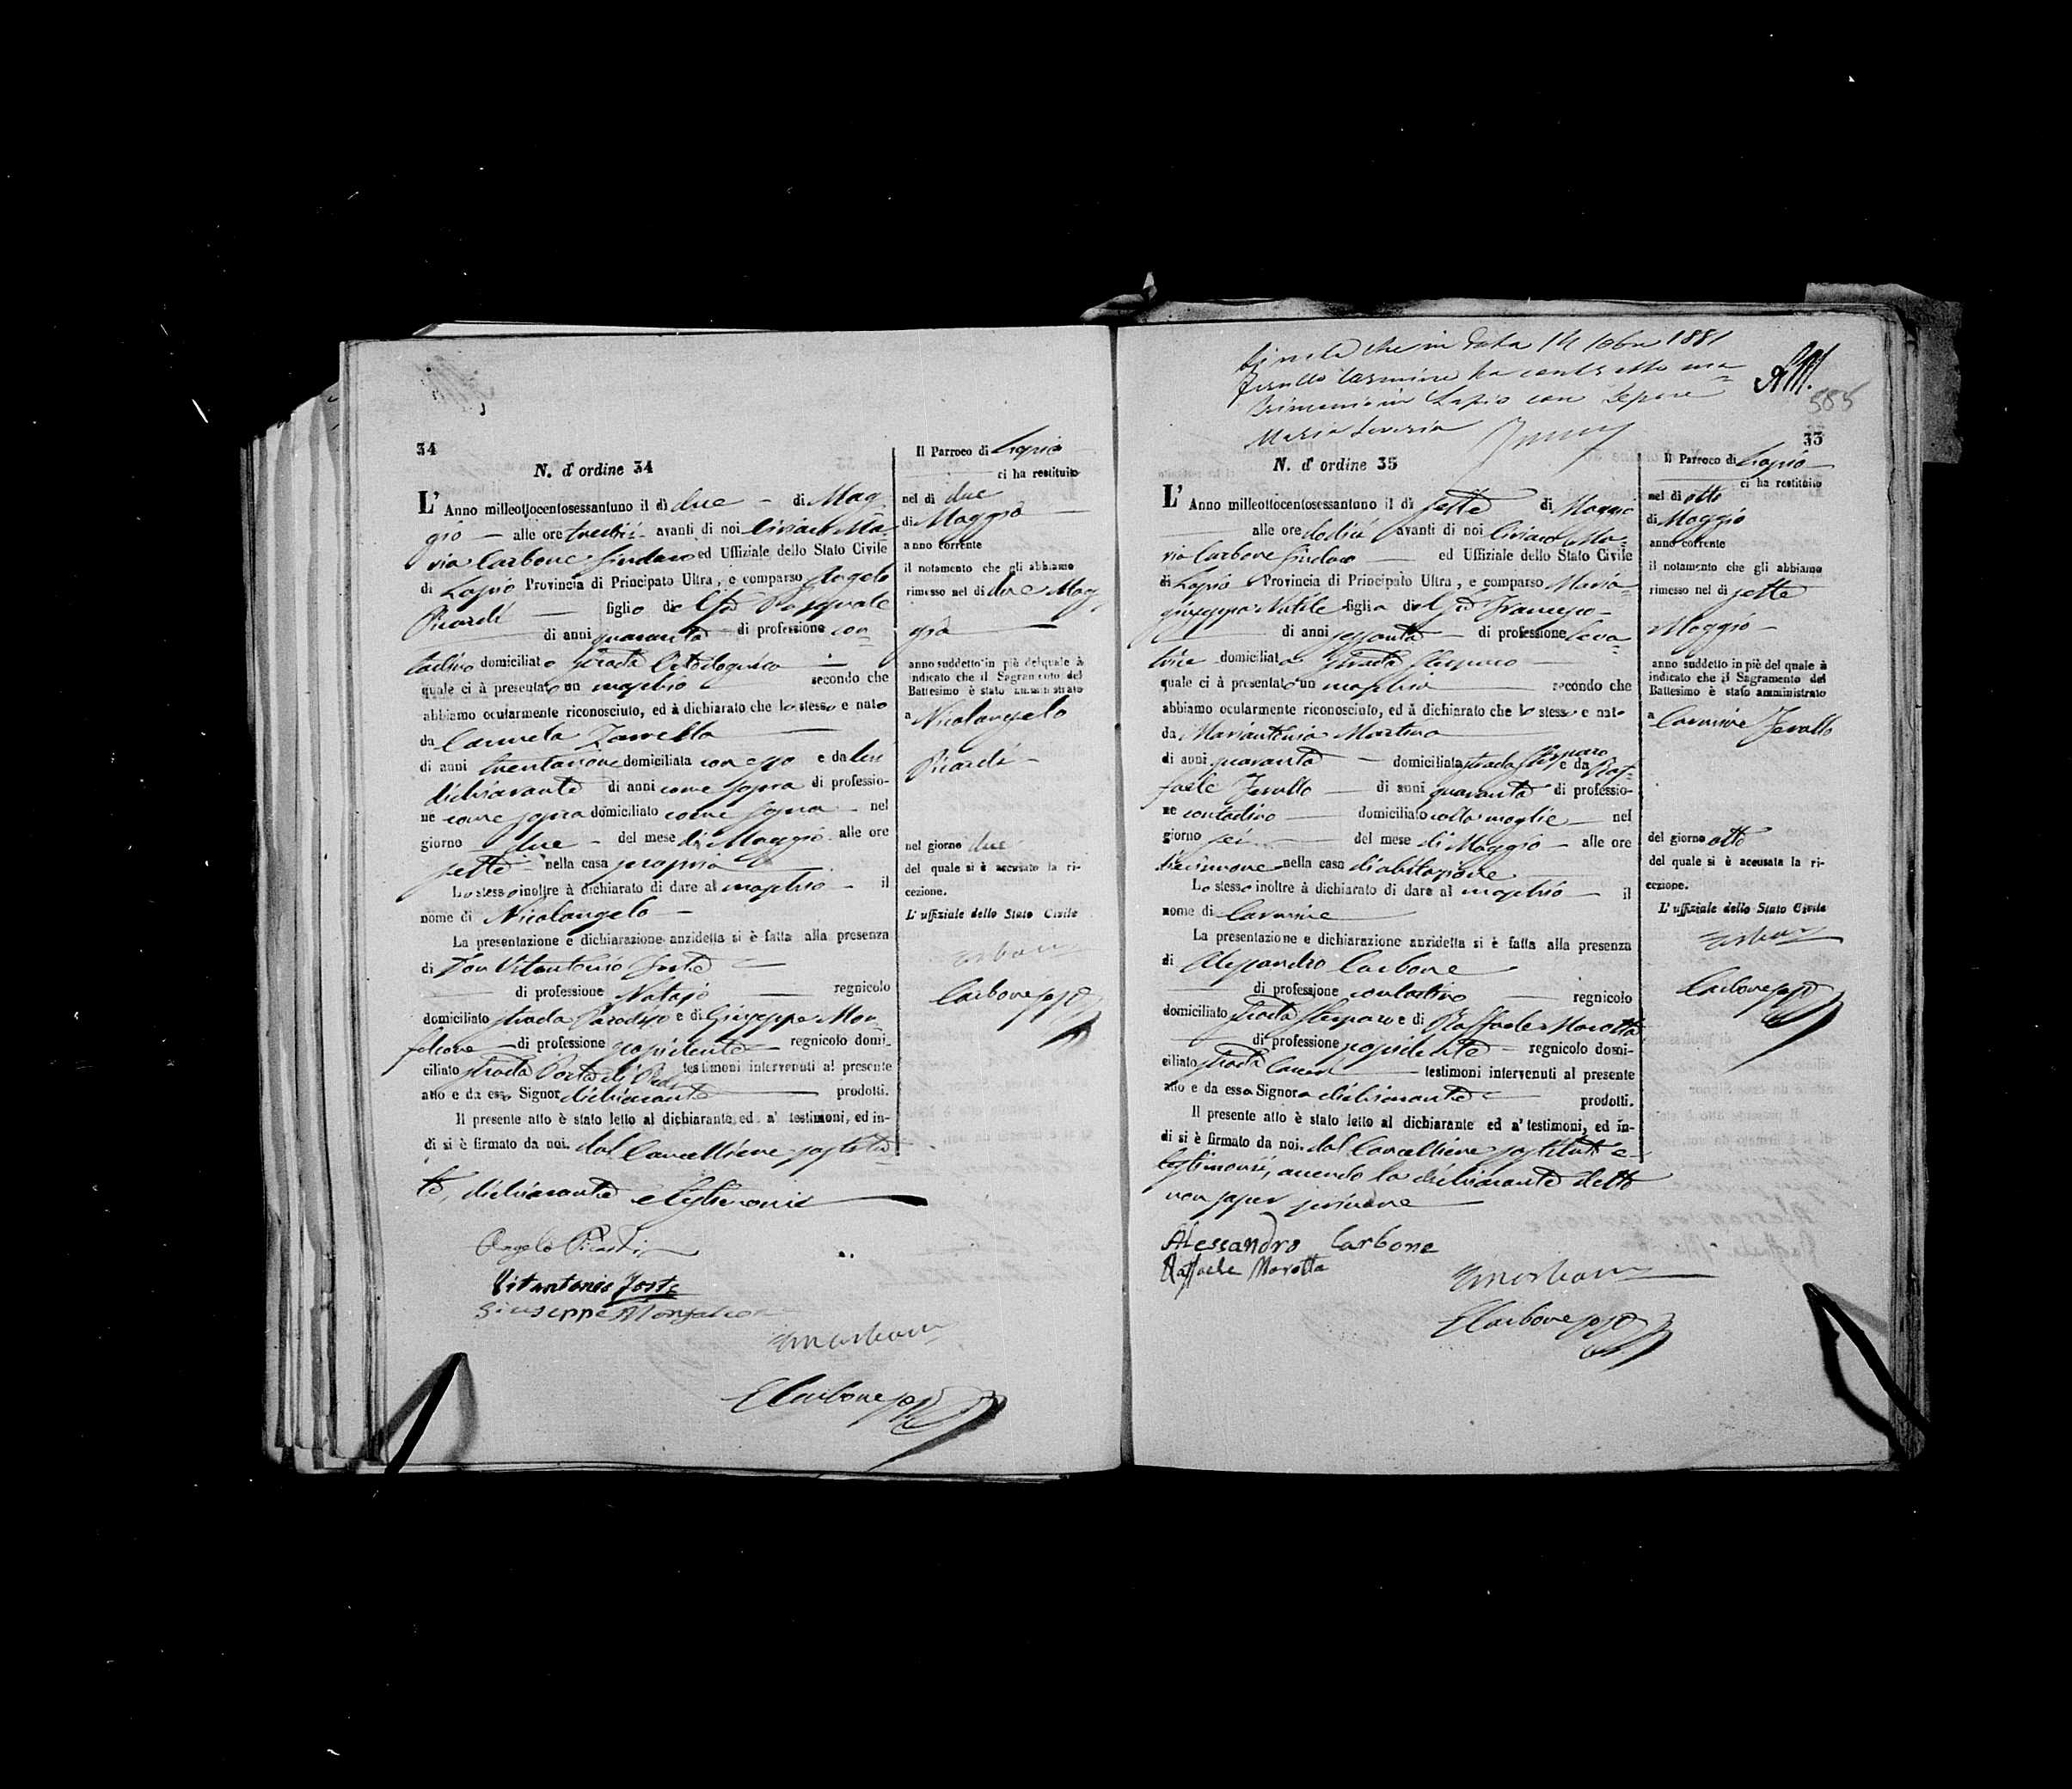 34
N. d' ordine 34
L' Anno milleottocentosessantuno il dì due di Mag
gio alle ore tredici avanti di noi Ciriaco Ma-
ria Carbone Sindaco ed Uffiziale dello Stato Civile
di Lapio Provincia di Principato Ultra, e comparso Angelo
Picardi figlio del fu Pasquale
di anni quaranta di professione con-
tadino domiciliato strada
quale ci à presentato un maschio secondo che
abbiamo ocularmente riconosciuto, ed à dichiarato che lo stesso e nato
da Carmela Zarrella
di anni trentanove domiciliata con esso e da lui
dichiarante di anni come sopra di professio-
ne come sopra domiciliato come sopra nel
giorno due del mese di Maggio alle ore
sette nella casa propria
Lo stesso inoltre à dichiarato di dare al maschio il
nome di Nicolangelo
La presentazione e dichiarazione anzidetta si è fatta alla presenza
di Don Vitantonio Forte
di professione Notajo regnicolo
domiciliato strada Paradiso e di Giuseppe Mon-
falcone di professione possidente regnicolo domi-
ciliato strada Porta di testimoni intervenuti al presente
atto e da esso Signor dichiarante prodotti.
Il presente atto è stato letto al dichiarante ed a' testimoni, ed in-
di si è firmato da noi, dal Cancelliere sostitu-
to, dichiarante e testimonii
Angelo Picardi
Vitantonio Forte
Giuseppe Monfalcone
Carbone
Il Parroco di Lapio
ci ha restituito
nel dì due
di Maggio
anno corrente
il notamento che gli abbiamo
rimesso nel dì due Mag
gio
anno suddetto in piè del quale à
indicato che il Sagramento del
Battesimo è stato amministrato
a Nicolangelo
Picardi
nel giorno due
del quale si è accusata la ri-
cezione.
L' uffiziale dello Stato Civile
Carbone
che in data 14 1881
Carmine ha contratto ma-
trimonio in Lapio con Lepore
Maria Saveria
585
35
N. d' ordine 35
L' Anno milleottocentosessantuno il dì sette di Maggio
alle ore dodici avanti di noi Ciriaco Ma-
ria Carbone Sindaco ed Uffiziale dello Stato Civile
di Lapio Provincia di Principato Ultra, e comparso Maria-
giuseppa Natile figlia del fu Francesco
di anni sessanta di professione leva-
trice domiciliata strada
quale ci à presentato un maschio secondo che
abbiamo ocularmente riconosciuto, ed à dichiarato che lo stesso e nato
da Mariantonia Martino
di anni quaranta domiciliata strada e da Raf-
faele Jerullo di anni quaranta di professio-
ne contadino domiciliato colla moglie nel
giorno sei del mese di Maggio alle ore
diecinnove nella casa di abitazione
Lo stesso inoltre à dichiarato di dare al maschio il
nome di Carmine
La presentazione e dichiarazione anzidetta si è fatta alla presenza
di Alessandro Carbone
di professione contadino regnicolo
domiciliato strada e di Raffaele Marotta
di professione possidente regnicolo domi-
ciliato strada testimoni intervenuti al presente
atto e da essa Signora dichiarante prodotti.
Il presente atto è stato letto al dichiarante ed a' testimoni, ed in-
di si è firmato da noi, dal Cancelliere sostituto e
testimonii, avendo la dichiarante detto
non saper scrivere
Alessandro Carbone
Raffaele Marotta
Carbone
Il Parroco di Lapio
ci ha restituito
nel dì otto
di Maggio
anno corrente
il notamento che gli abbiamo
rimesso nel dì sette
Maggio
anno suddetto in piè del quale à
indicato che il Sagramento del
Battesimo è stato amministrato
a Carmine Jerullo
del giorno otto
del quale si è accusata la ri-
cezione.
L' uffiziale dello Stato Civile
Carbone